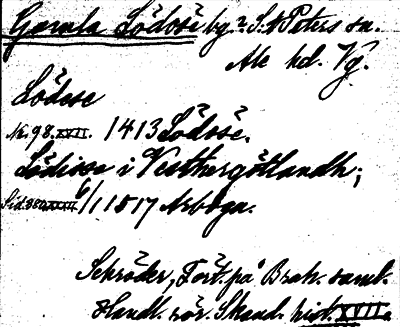 Gamla Lödöse by? S:t Peters sn.
Ale hd. Vg.
Lödose
Nr. 98. XVII. 1413 Lödose.
Lödisse i Vesthergötlandh;
Sid. 6/1 1517 Arboga.
Schröder, Fört. på Brah. saml.
Handl. rör. Skand. hist. XVII.